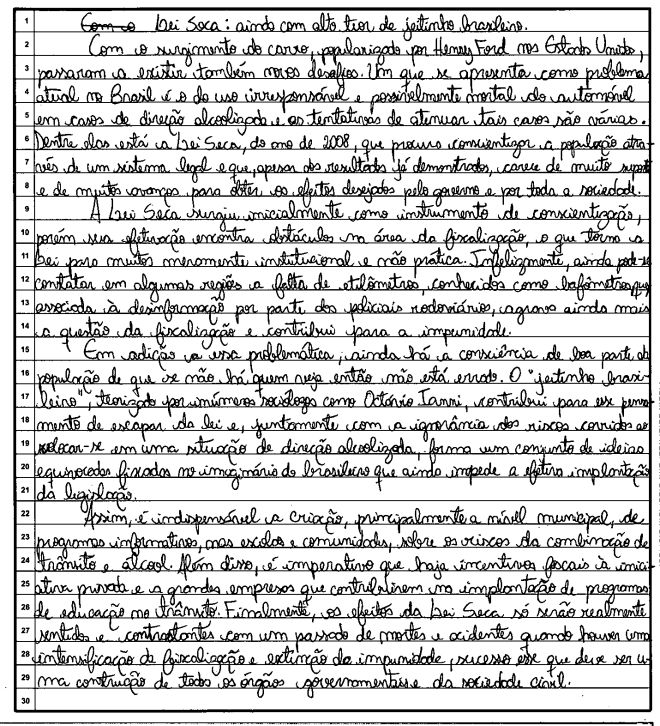 1 Com o Lei Seca: ainda com alto teor de jeitinho brasileiro.
2 Com o surgimento do carro, popularizado por Henry Ford nos Estados Unidos,
3 passaram a existir também novos desafios. Um que se apresenta como problema
4 atual no Brasil é o do uso irresponsável e possivelmente mortal do automóvel
5 em casos de direção alcoolizada e as tentativas de atenuar tais casos são várias.
6 Dentre elas está a Lei Seca, do ano de 2008, que procura conscientizar a população atra-
7 vés de um sistema legal e que, apesar dos resultados já demonstrados, carece de muito suporte
8 e de muitos avanços para obter os efeitos desejados pelo governo e por toda a sociedade.
9 A Lei Seca surgiu inicialmente como instrumento de conscientização,
10 porém sua efetivação encontra obstáculos na área da fiscalização, o que torna a
11 Lei para muitos meramente institucional e não prática. Infelizmente, ainda pode-se
12 constatar em algumas regiões a falta de etilômetros, conhecidos como bafômetros, que
13 associada à desinformação por parte dos policiais rodoviários, agrava ainda mais
14 a questão da fiscalização e contribui para a impunidade.
15 Em adição a essa problemática, ainda há a consciência de boa parte da
16 população de que se não há quem veja então não está errado. O "jeitinho brasi-
17 leiro", teorizado por inúmeros sociólogos como Octávio Ianni, contribui para esse pensa-
18 mento de escapar da lei e, juntamente com a ignorância dos riscos corridos ao
19 colocar-se em uma situação de direção alcoolizada, forma um conjunto de ideias
20 equivocadas fixadas no imaginário do brasileiro que ainda impede a efetiva implantação
21 da legislação.
22 Assim, é indispensável a criação, principalmente a nível municipal, de
23 programas informativos, nas escolas e comunidades, sobre os riscos da combinação de
24 trânsito e álcool. Além disso, é imperativo que haja incentivos fiscais à inici-
25 ativa privada e a grandes empresas que contribuirem na implantação de programas
26 de educação no trânsito. Finalmente, os efeitos da Lei Seca só serão realmente
27 sentidos e contrastantes com um passado de mortes e acidentes quando houver uma
28 intensificação da fiscalização e extinção da impunidade, sucesso esse que deve ser u-
29 ma construção de todos os órgãos governamentais e da sociedade civil.
30